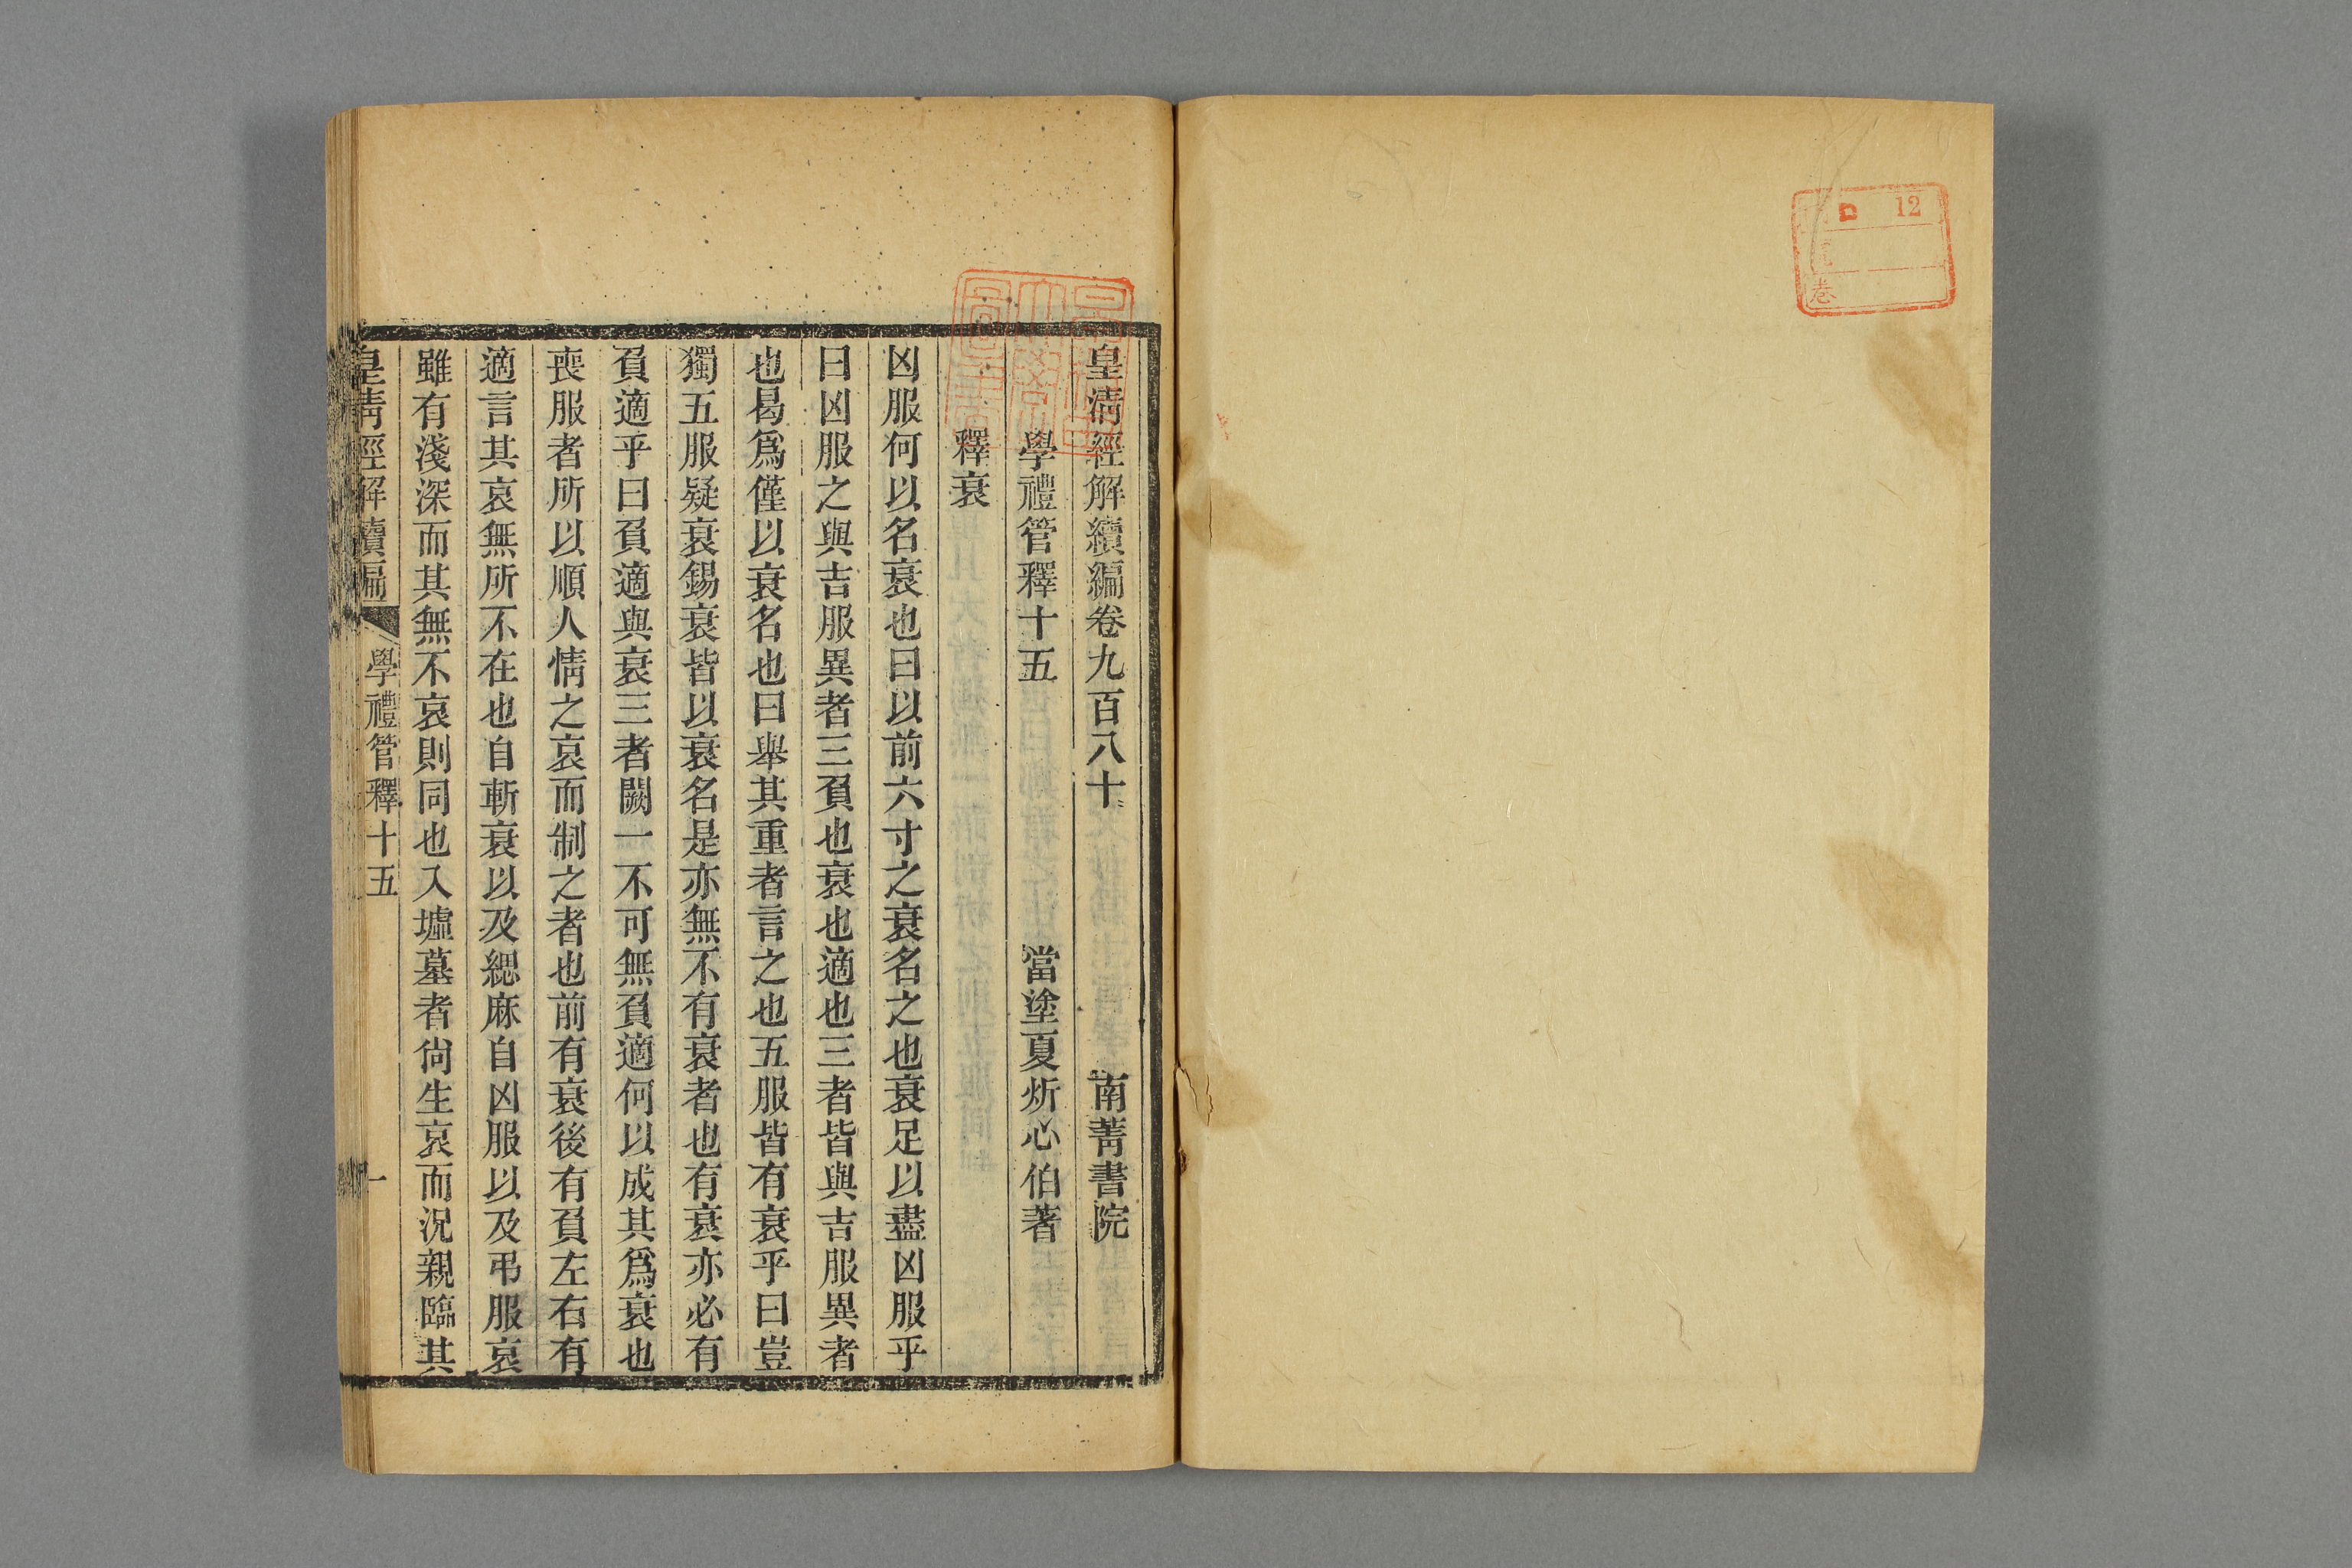 12
卷
皇清經解續編卷九百八十 南菁書院
學禮管釋十五 當塗夏炘心伯著
釋衰
凶服何以名衰也曰以前六寸之衰名之也衰足以盡凶服乎
曰凶服之與吉服異者三負也衰也適也三者皆與吉服異者
也曷爲僅以衰名也曰舉其重者言之也五服皆有衰乎曰豈
獨五服疑衰錫衰皆以衰名是亦無不有衰者也有衰亦必有
負適乎曰負適與衰三者闕一不可無負適何以成其爲衰也
喪服者所以順人情之哀而制之者也前有衰後有負左右有
適言其哀無所不在也自斬衰以及緦麻自凶服以及弔服哀
雖有淺深而其無不哀則同也入墟墓者尙生哀而況親臨其
皇清經解續編 學禮管釋十五 一